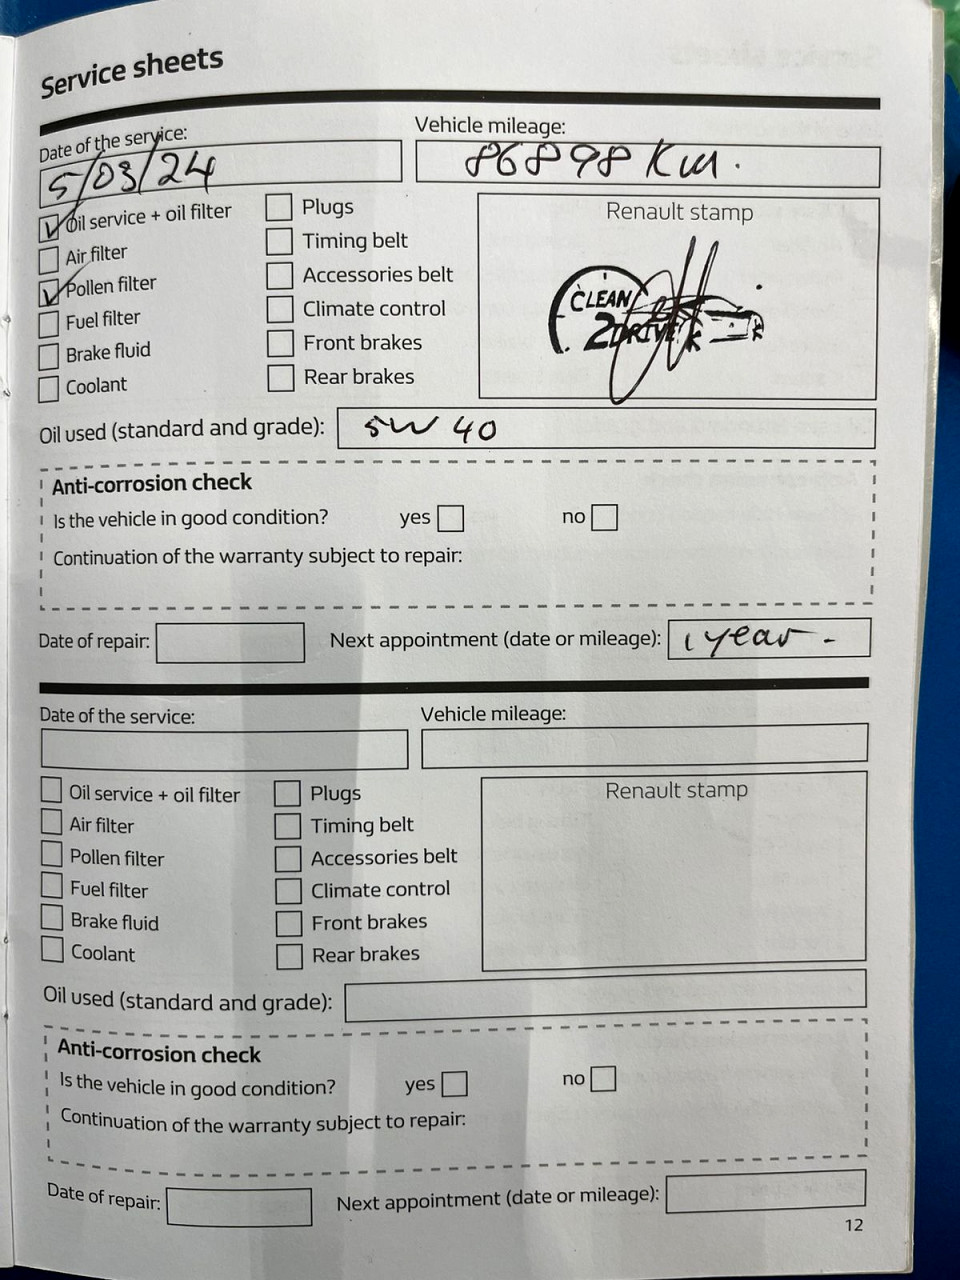 Service sheets
Date of the service: Vehicle mileage:
5/03/24 86898 Km.
Oil service + oil filter Plugs Renault stamp
Air filter Timing belt
Pollen filter Accessories belt
Fuel filter Climate control
Brake fluid Front brakes
Coolant Rear brakes
CLEAN
2DRIVE
Oil used (standard and grade): 5W 40
Anti-corrosion check
Is the vehicle in good condition? yes no
Continuation of the warranty subject to repair:
Date of repair: Next appointment (date or mileage): 1 year -
Date of the service: Vehicle mileage:
Oil service + oil filter Plugs Renault stamp
Air filter Timing belt
Pollen filter Accessories belt
Fuel filter Climate control
Brake fluid Front brakes
Coolant Rear brakes
Oil used (standard and grade):
Anti-corrosion check
Is the vehicle in good condition? yes no
Continuation of the warranty subject to repair:
Date of repair: Next appointment (date or mileage):
12